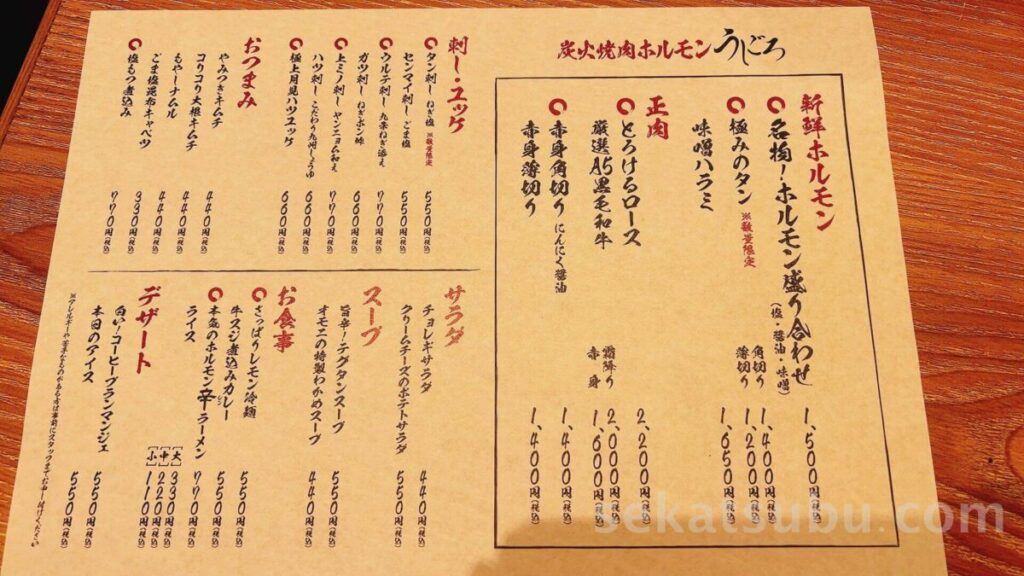 炭火焼肉ホルモン うしごろ
新鮮ホルモン
名物!ホルモン盛り合わせ (塩・醤油・味噌) 1,500円(税込)
極みのタン ※数量限定 角切り 1,400円(税込)
薄切り 1,200円(税込)
味噌ハラミ 1,650円(税込)
正肉
とろけるロース 2,200円(税込)
厳選A5黒毛和牛 霜降り 2,000円(税込)
赤身 1,600円(税込)
赤身角切り にんにく醤油 1,400円(税込)
赤身薄切り 1,400円(税込)
刺し・ユッケ
タン刺し ねぎ塩 ※数量限定 550円(税込)
センマイ刺し ごま塩 550円(税込)
ウルテ刺し 九条ねぎ添え 770円(税込)
ガツ刺し ねぎポン酢 660円(税込)
上ミノ刺し ヤンニョム和え 770円(税込)
ハツ刺し こだわり九州しょうゆ 660円(税込)
極上月見ハツユッケ 660円(税込)
おつまみ
やみつきキムチ 440円(税込)
コリコリ大根キムチ 440円(税込)
もやしナムル 440円(税込)
ごま塩昆布キャベツ 330円(税込)
塩もつ煮込み 770円(税込)
サラダ
チョレギサラダ 440円(税込)
クリームチーズのポテトサラダ 550円(税込)
スープ
旨辛!テグタンスープ 550円(税込)
オモニの特製わかめスープ 440円(税込)
お食事
さっぱりレモン冷麺 550円(税込)
牛スジ煮込みカレー 550円(税込)
本気のホルモン辛ラーメン 770円(税込)
ライス 大 330円(税込)
中 220円(税込)
小 110円(税込)
デザート
白い!コーヒーブランマンジェ 550円(税込)
本日のアイス 550円(税込)
※アレルギーや苦手なものがある方は事前にスタッフまでお申し付けください
sekatsubu.com